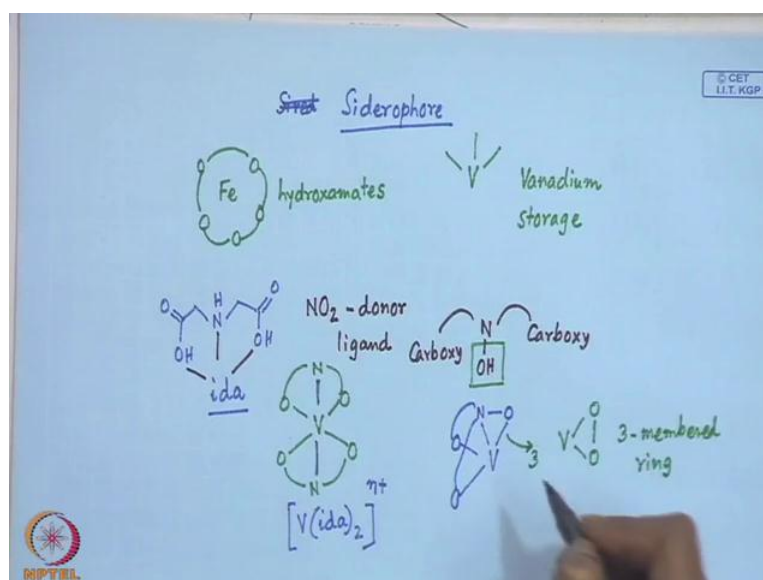 © CET
I.I.T. KGP
Sired Siderophore
Fe
O O O O O
hydroxamates
V
Vanadium
storage
O H O
N
OH OH
ida
NO2-donor
ligand
N
Carboxy Carboxy
OH
N
O O
V
O O
N
[V(ida)2]n+
N-O
O
V
O
3
V
O
O
3-membered
ring
NPTEL